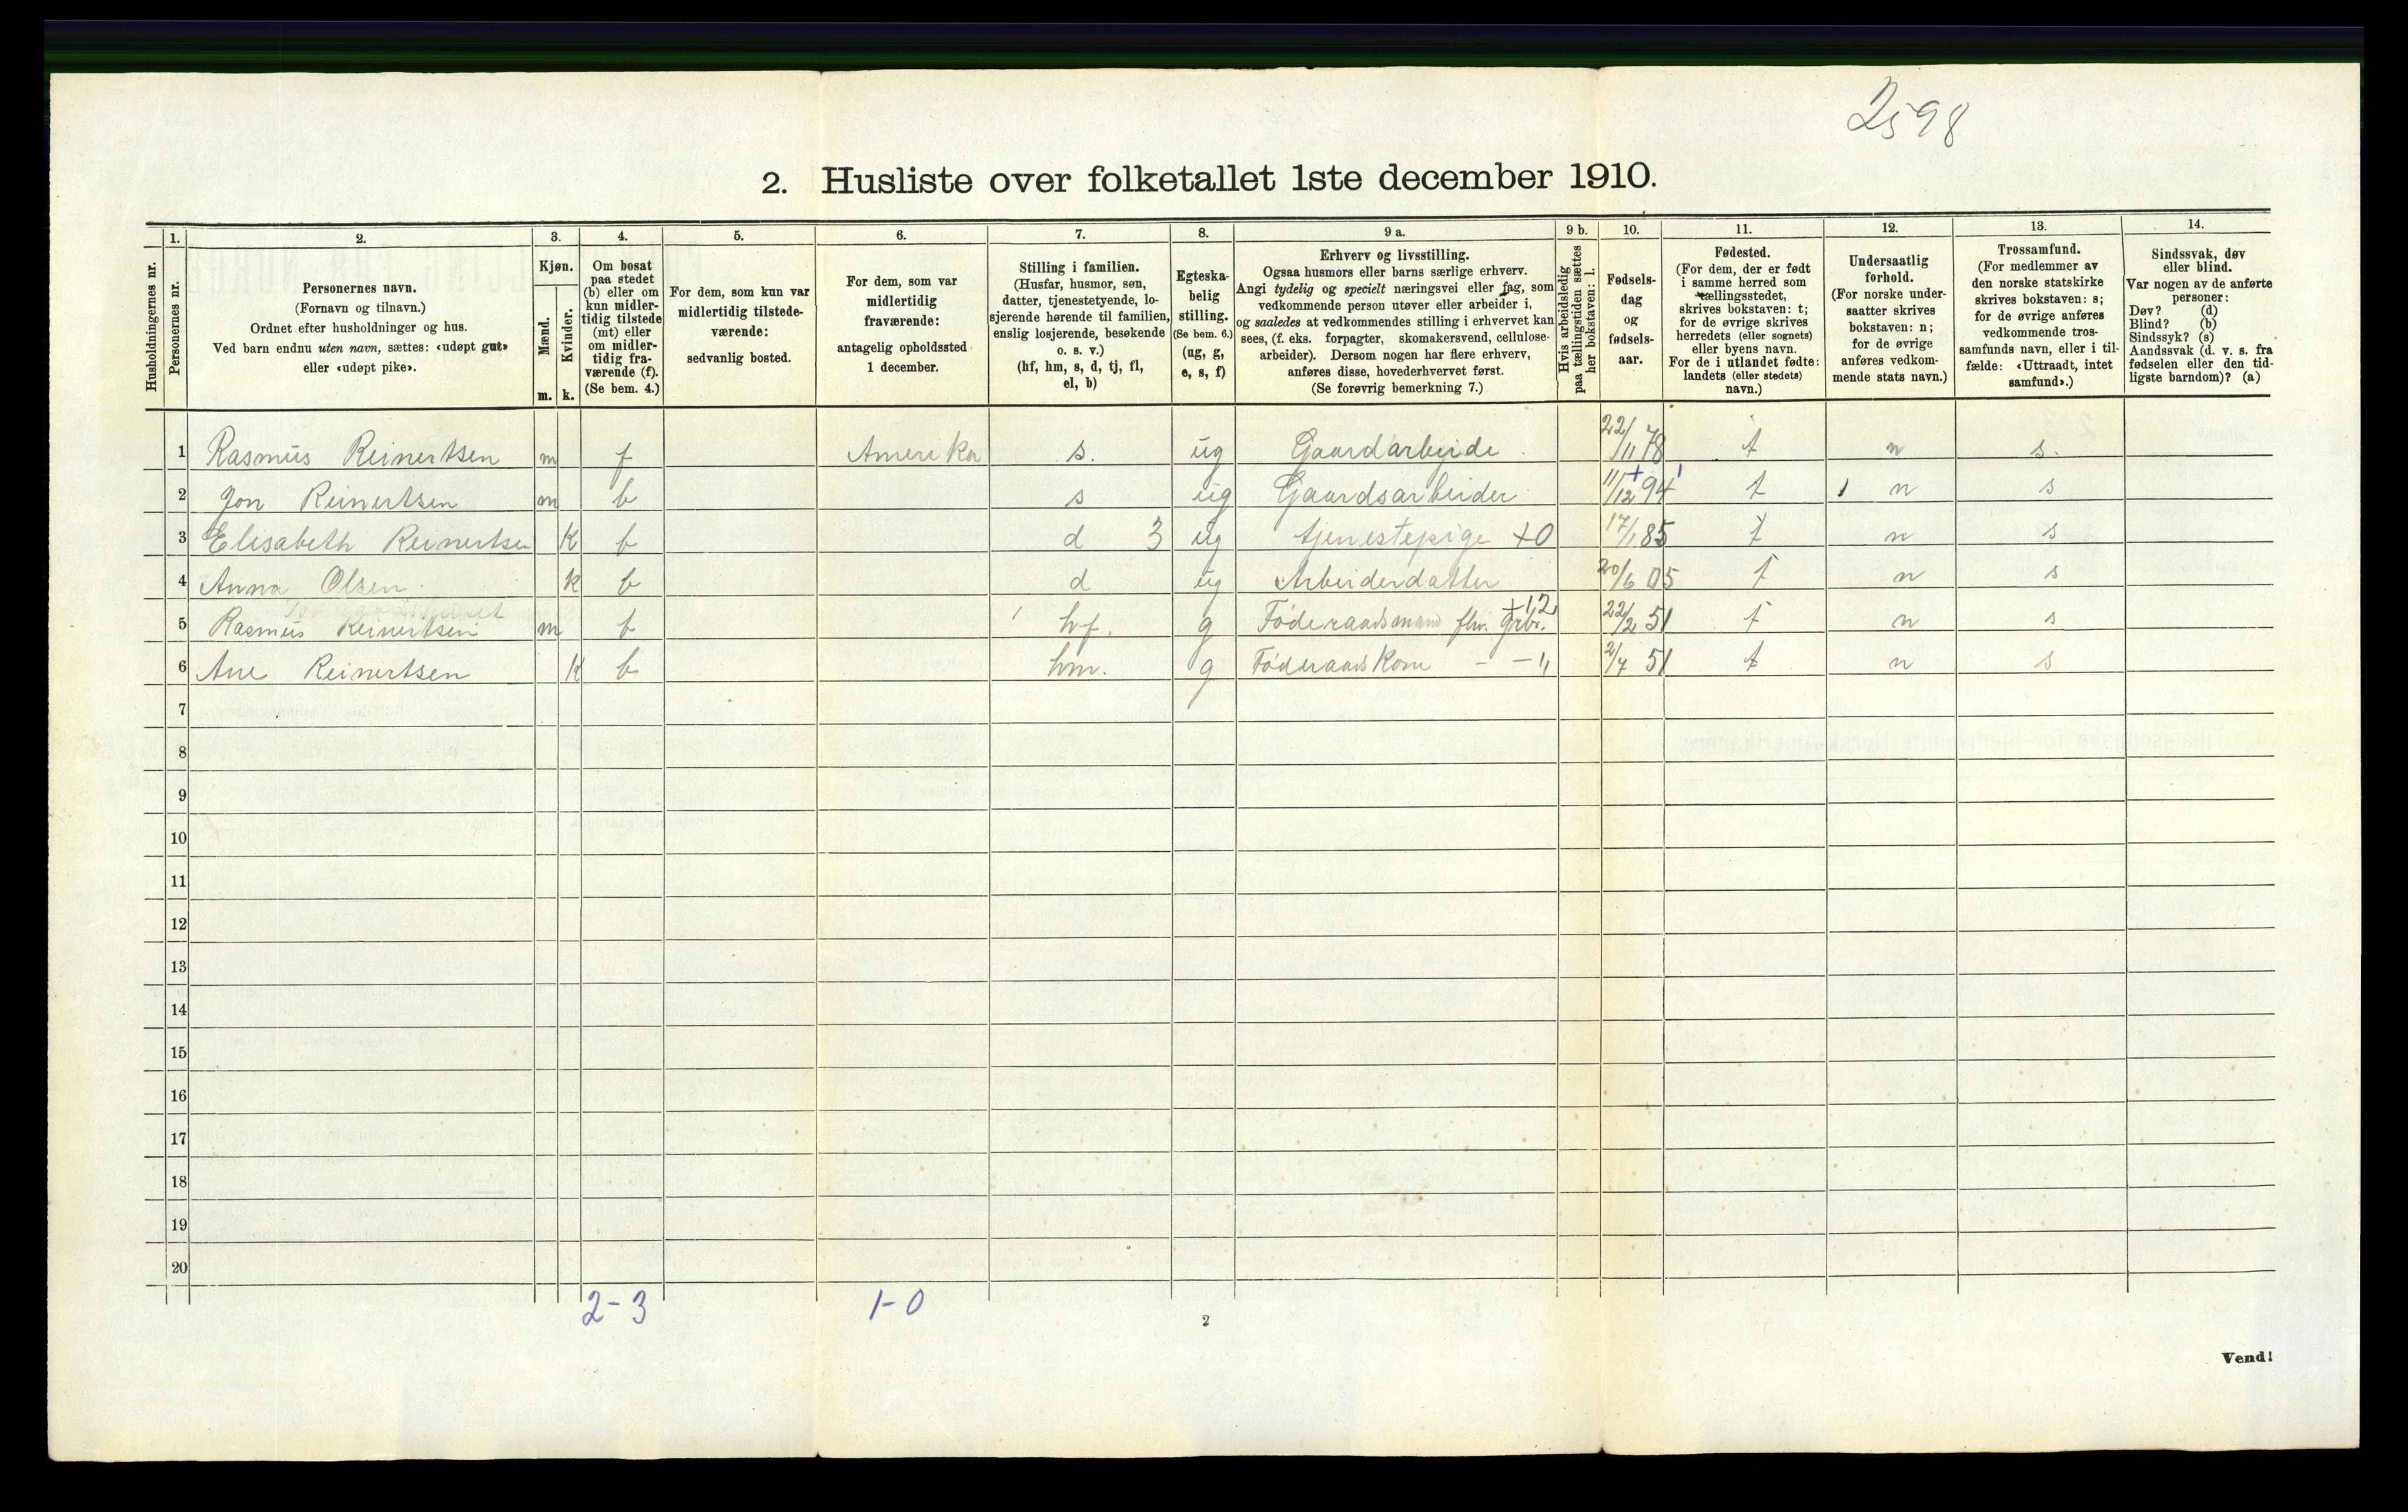 2598
2. Husliste over folketallet 1ste december 1910.
1. 2. 3. 4. 5. 6. 7. 8. 9 a. 9 b. 10. 11. 12. 13. 14.
Husholdningernes nr.
Personernes nr.
Personernes navn.
(Fornavn og tilnavn.)
Ordnet efter husholdninger og hus.
Ved barn endnu uten navn, sættes: «udøpt gut»
eller «udøpt pike».
Kjøn.
Mænd.
Kvinder.
m. k.
Om bosat
paa stedet
(b) eller om
kun midler-
tidig tilstede
(mt) eller
om midler-
tidig fra-
værende (f).
(Se bem. 4.)
For dem, som kun var
midlertidig tilstede-
værende:
sedvanlig bosted.
For dem, som var
midlertidig
fraværende:
antagelig opholdssted
1 december.
Stilling i familien.
(Husfar, husmor, søn,
datter, tjenestetyende, lo-
sjerende hørende til familien,
enslig losjerende, besøkende
o. s. v.)
(hf, hm, s, d, tj, fl,
el, b)
Egteska-
belig
stilling.
(Se bem. 6.)
(ug, g,
e, s, f)
Erhverv og livsstilling.
Ogsaa husmors eller barns særlige erhverv.
Angi tydelig og specielt næringsvei eller fag, som
vedkommende person utøver eller arbeider i,
og saaledes at vedkommendes stilling i erhvervet kan
sees, (f. eks. forpagter, skomakersvend, cellulose-
arbeider). Dersom nogen har flere erhverv,
anføres disse, hovederhvervet først.
(Se forøvrig bemerkning 7.)
Hvis arbeidsledig
paa tællingstiden sættes
her bokstaven: l.
Fødsels-
dag
og
fødsels-
aar.
Fødested.
(For dem, der er født
i samme herred som
tællingsstedet,
skrives bokstaven: t;
for de øvrige skrives
herredets (eller sognets)
eller byens navn.
For de i utlandet fødte:
landets (eller stedets)
navn.)
Undersaatlig
forhold.
(For norske under-
saatter skrives
bokstaven: n;
for de øvrige
anføres vedkom-
mende stats navn.)
Trossamfund.
(For medlemmer av
den norske statskirke
skrives bokstaven: s;
for de øvrige anføres
vedkommende tros-
samfunds navn, eller i til-
fælde: «Uttraadt, intet
samfund».)
Sindssvak, døv
eller blind.
Var nogen av de anførte
personer:
Døv? (d)
Blind? (b)
Sindssyk? (s)
Aandssvak (d. v. s. fra
fødselen eller den tid-
ligste barndom)? (a)
1 Rasmus Reinertsen m f Amerika s. ug Gaardarbeide 22/11 78 t n s.
2 Jon Reinertsen m b s ug Gaardsarbeider 11/12 94 t n s
3 Elisabeth Reinertsen K b d 3 ug tjenestepige +0 17/1 85 t n s
4 Anna Olsen k b d ug Arbeiderdatter 20/6 05 t n s
5 Rasmus Reinertsen m b hf. g Føderaadsmand flw. grbr. +12 22/2 51 t n s
6 Ane Reinertsen K b hm. g Føderaads Kone - -„ 2/7 51 t n s
7
8
9
10
11
12
13
14
15
16
17
18
19
20
2-3 1-0
2
Vend!